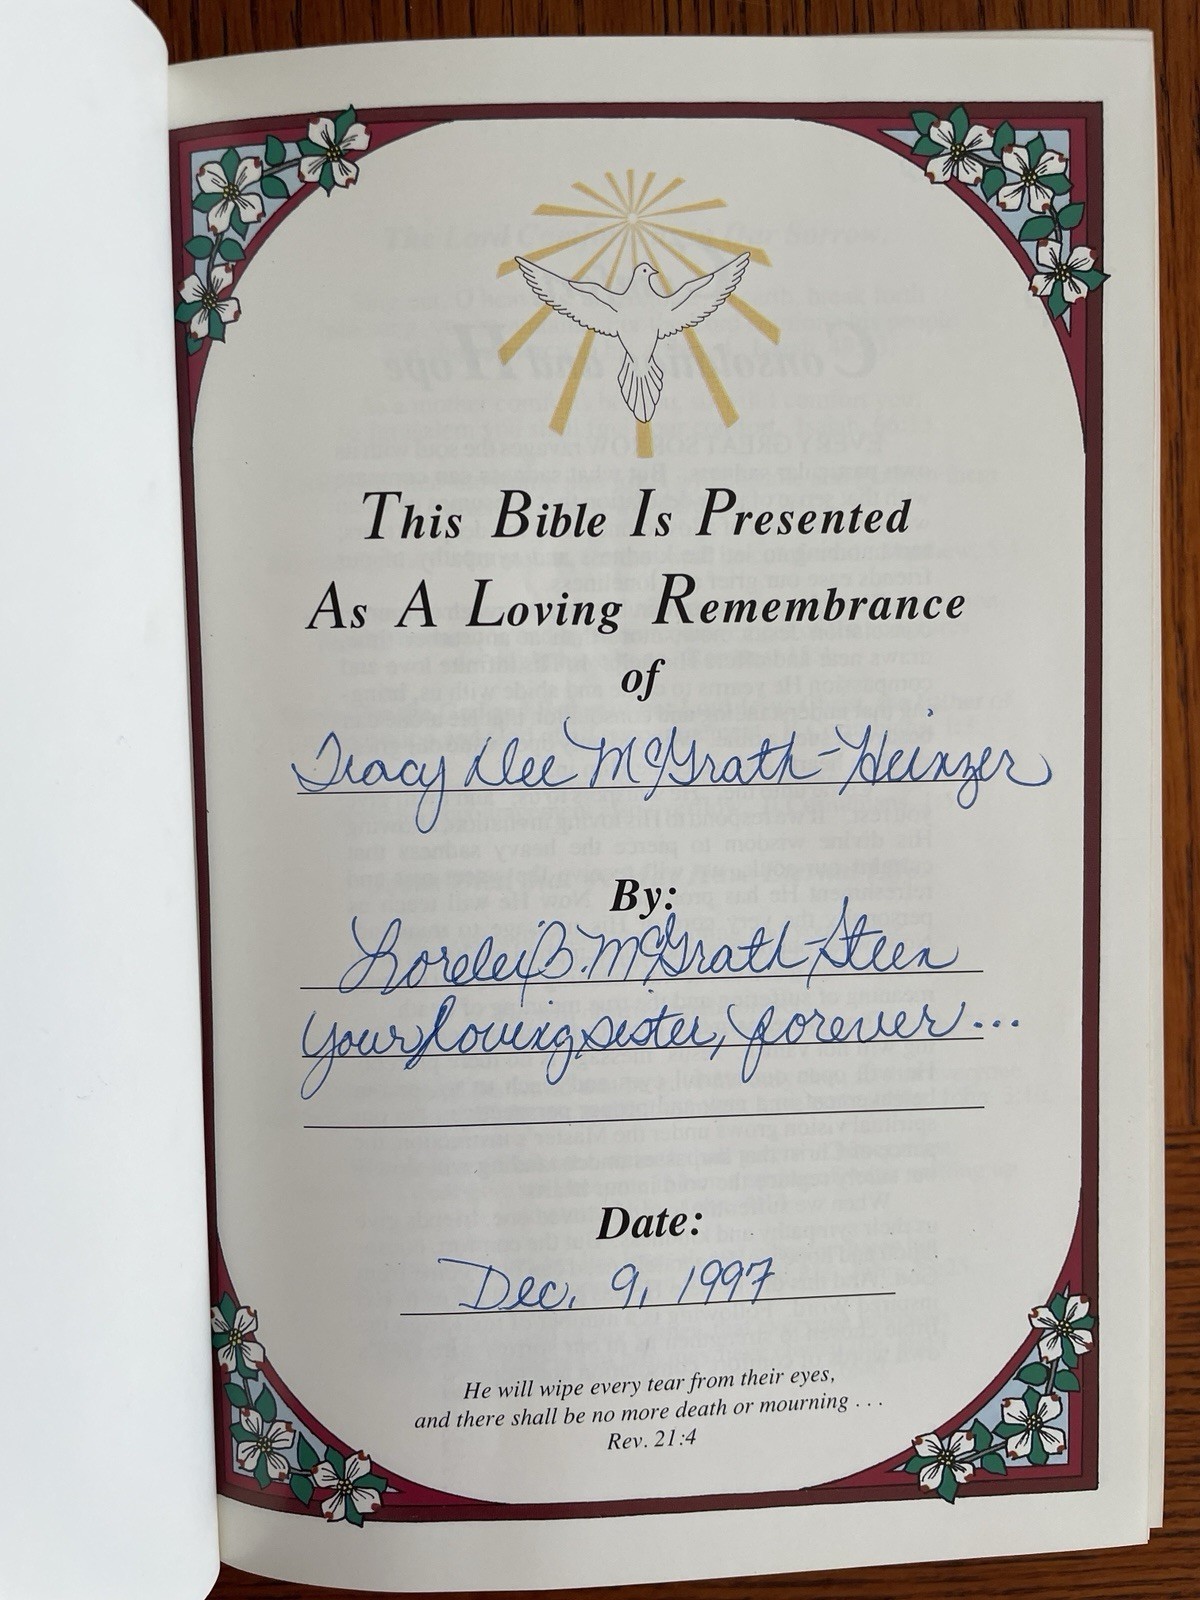 This Bible Is Presented
As A Loving Remembrance
of
Tracy Dee McGrath-Heinzer
By:
Lorelei B. McGrath-Steen
Your loving sister, forever...
Date:
Dec. 9, 1997
He will wipe every tear from their eyes,
and there shall be no more death or mourning . . .
Rev. 21:4